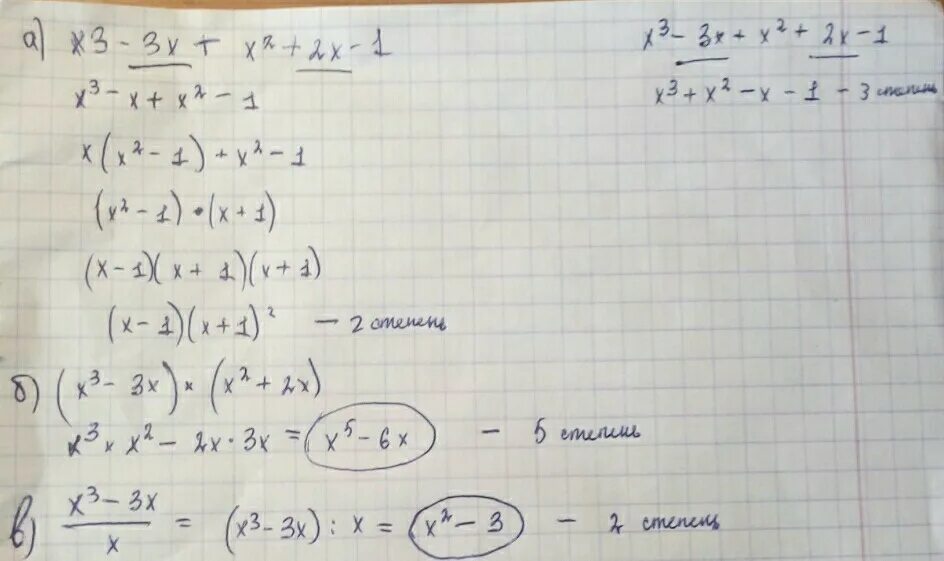 а) x3 - 3x + x² + 2x - 1
x³ - x + x² - 1
x(x² - 1) + x² - 1
(x² - 1) • (x + 1)
(x - 1)(x + 1)(x + 1)
(x - 1)(x + 1)² - 2 степень
x³ - 3x + x² + 2x - 1
x³ + x² - x - 1 - 3 степень
б) (x³ - 3x) × (x² + 2x)
x³ × x² - 2x · 3x = x⁵ - 6x - 5 степень
в) (x³ - 3x)/x = (x³ - 3x) : x = x² - 3 - 2 степень